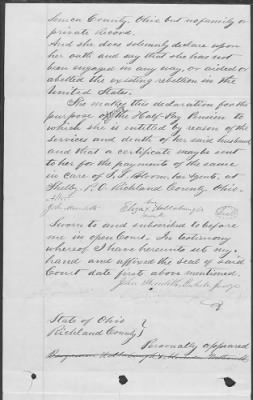 Seneca County, Ohio but no family or
private Record.
And she does solemnly declare upon
her oath and say that she has not
been engaged in any way, or aided or
abetted the existing rebellion in the
United States.
She makes this declaration for the
purpose of the Half-Pay Pension to
which she is entitled by reason of the
services and death of her said husband
and that a certificate may be sent
to her for the payments of the same
in care of S. S. Bloom, her Agent, at
Shelby P.O. Richland County Ohio.
Attest
her
John Meredith Eliza X
mark
Sworn to and subscribed to before
me in open Court. In testimony
whereof I have hereunto set my
hand and affixed the seal of said
Court date first above mentioned.
John Meredith, Probate Judge
State of Ohio
Richland County
Personally appeared